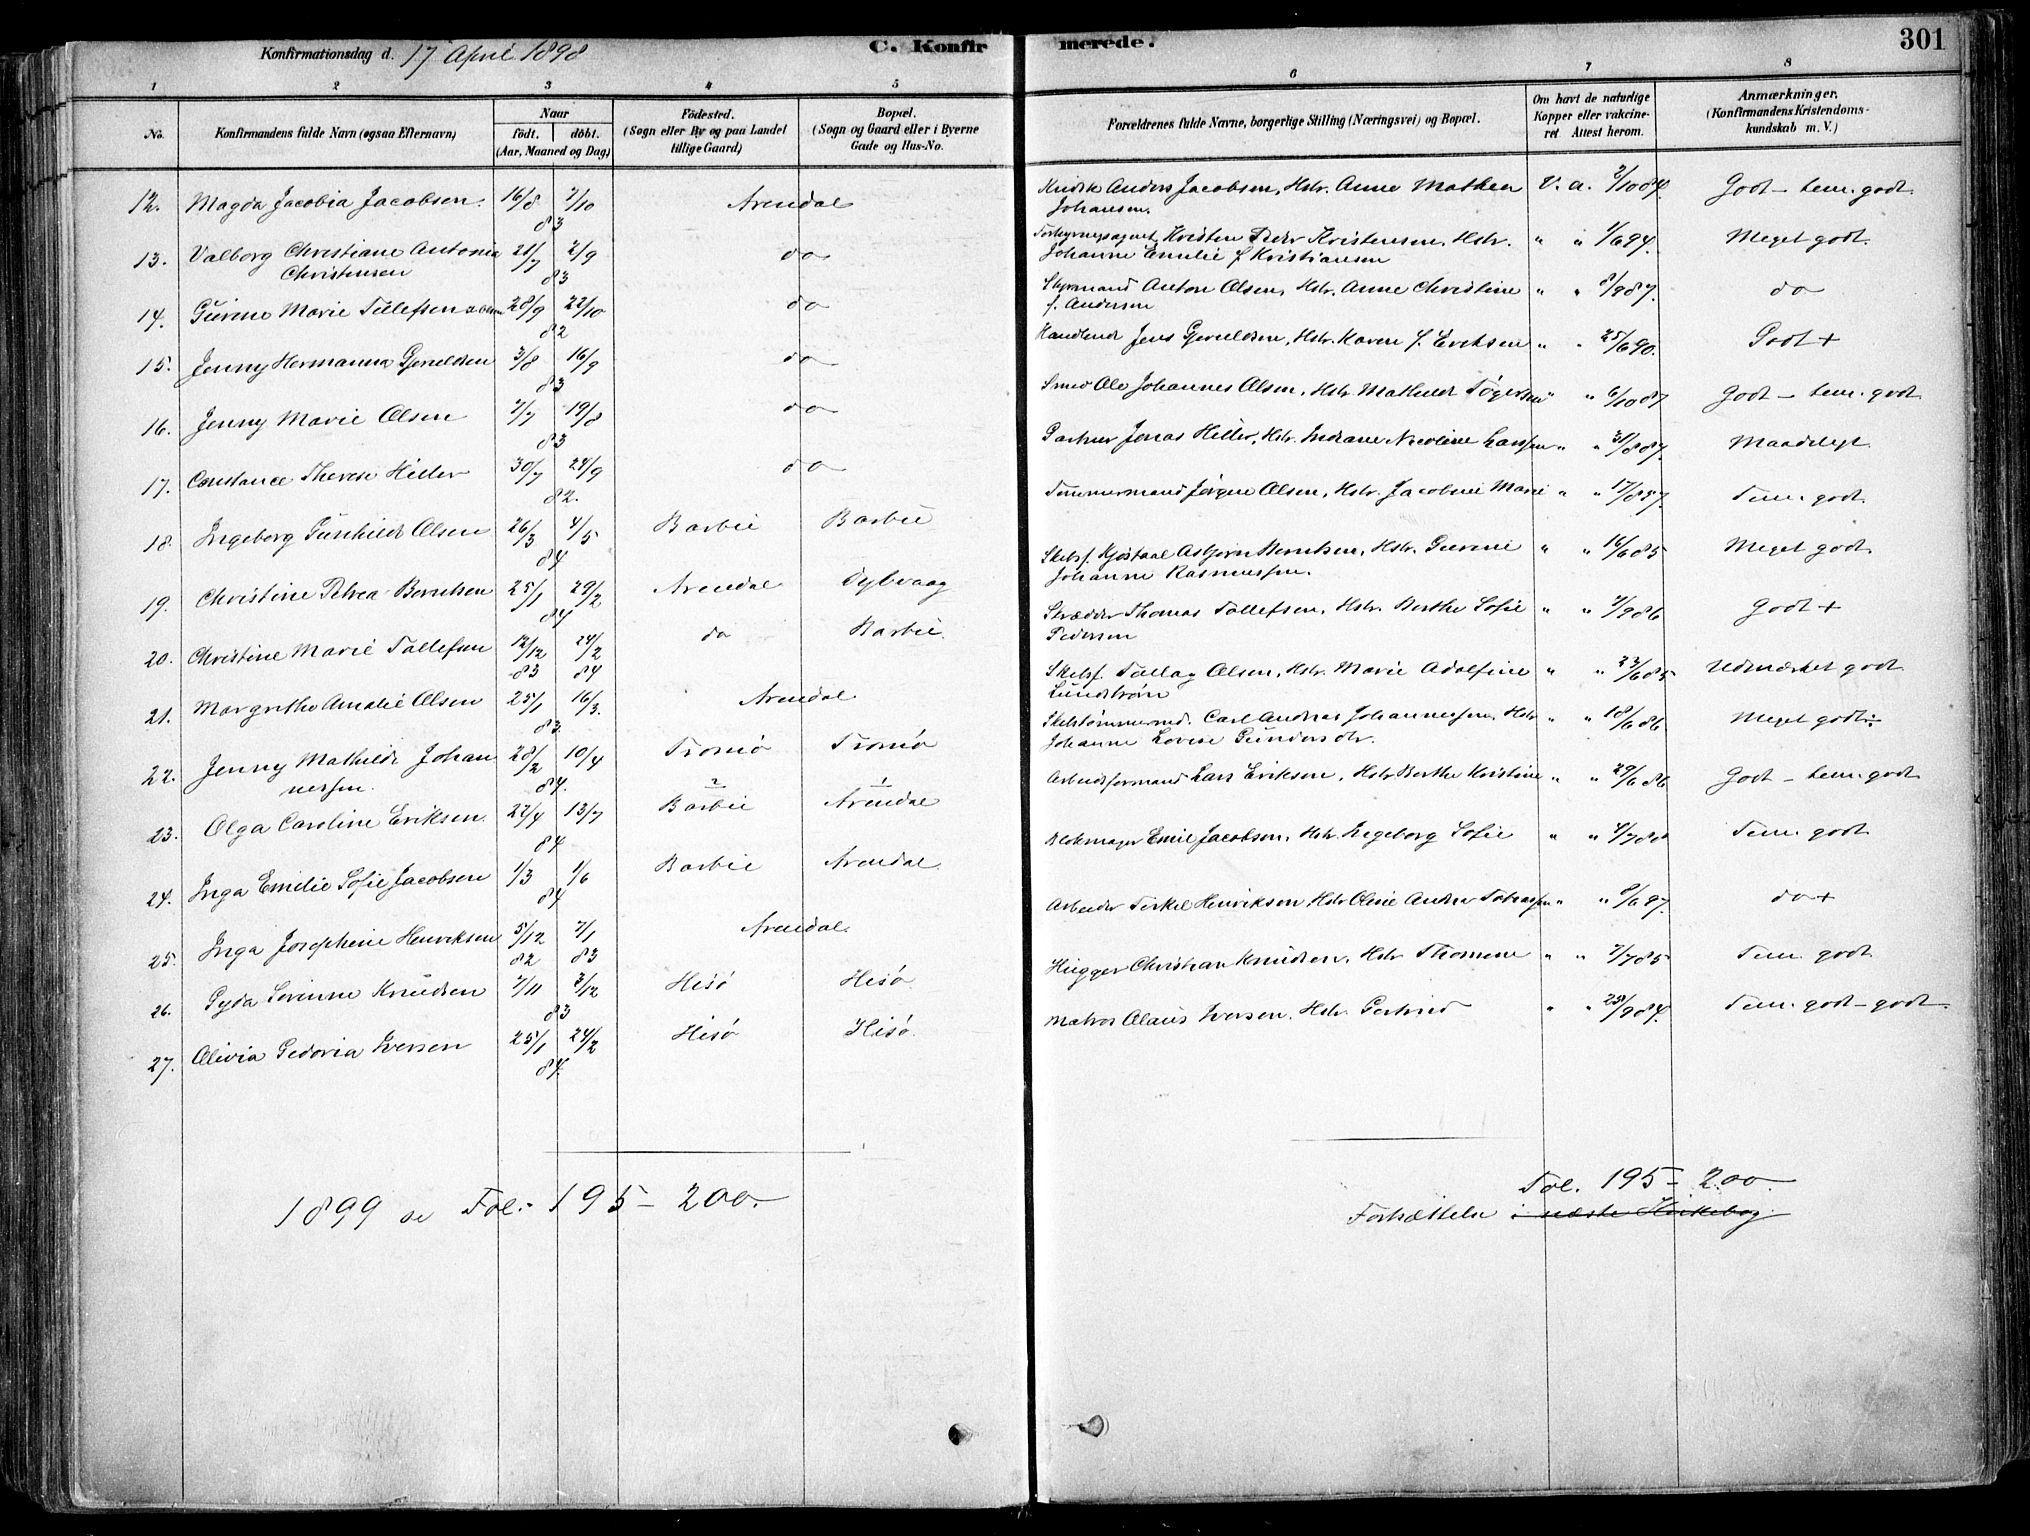 Konfirmationsdag d. 17 April 1898
C. Konfirmerede.
301
1 2 3 4 5 6 7 8
No.
Konfirmandens fulde Navn (ogsaa Efternavn)
Naar
födt. döbt.
(Aar, Maaned og Dag)
Födested.
(Sogn eller By og paa Landet
tillige Gaard)
Bopæl.
(Sogn og Gaard eller i Byerne
Gade og Hus-No.
Forældrenes fulde Navne, borgerlige Stilling (Næringsvei) og Bopæl.
Om havt de naturlige
Kopper eller vakcine-
ret Attest herom.
Anmærkninger.
(Konfirmandens Kristendoms-
kundskab m. V.)
12. Magda Jacobia Jacobsen. 16/8 7/10 83 Arendal Anders Jacobsen, Hstr. Anne Mathea Johansen. V. a. 2/10 84. Godt - tem. godt.
13. Valborg Christiane Antonia Christensen 21/7 2/9 83 do Kristen Peder Kristensen, Hstr. Johanne Emilie f Kristiansen " " 1/6 94. Meget godt.
14. Gurine Marie Tallefsen 28/9 22/10 82 do Styrmand Anton Olsen, Hstr. Anne Christine f. Andersen " " 8/9 87. do
15. Jenny Hermanna Gjeruldsen 3/8 16/9 83 do Jens Gjeruldsen, Hstr. Karen f. Eriksen " " 25/6 90. Godt +
16. Jenny Marie Olsen 7/7 19/8 83 do Smed Ole Johannes Olsen, Hstr. Mathilde Tögersen " " 6/10 87 Godt - tem. godt
17. Constance Therese Hiller 30/7 24/9 82. do Gartner Jonas Hiller, Hstr. Indiane Nicoline Larssen " " 31/8 87. Maadeligt
18. Ingeborg Gunhilde Olsen 26/3 4/5 84 Barbu Barbu Tømmermand Jörgen Olsen, Hstr. Jacobine Marie " " 17/8 57. Tem. godt.
19. Christine Petrea Berntsen 25/1 29/2 84 Arendal Dybvaag Skibsf. Asbjørn Berntsen, Hstr. Gurine Johanne Rasmussen. " " 16/6 85 Meget godt.
20. Christine Marie Tallefsen 12/12 83 24/2 84 do Barbu. Skræder Thomas Tallefsen, Hstr. Berthe Sofie Pedersen " " 7/9 86 Godt +
21. Margrethe Amalie Olsen 25/1 16/3. 83. Arendal Skibsf. Tallag Olsen, Hstr. Marie Adolfine Lundstrøm " " 23/6 85 Udmærket godt
22. Jenny Mathilde Johannessen. 28/2 10/4 84. Tromø Tromø Skibstømmermd. Carl Andreas Johannessen, Hstr Johanne Lovise Gundersdtr. " " 18/6 86 Meget godt
23. Olga Caroline Eriksen. 27/4 13/7 84 Barbu Arendal Arbeidsformand Lars Eriksen, Hstr Berthe Kristine " " 29/6 86 Godt - tem. godt
24. Inga Emilie Sofie Jacobsen 1/3 1/6 84 Barbu Arendal Blokmager Emil Jacobsen, Hstr. Ingeborg Sofie " " 4/7 88 Tem. godt.
25. Inga Josephine Henriksen 5/12 82 7/1 83 Arendal. Arbeider Terkel Henriksen, Hstr Oline Andrea Tobiassen " " 8/6 97. do +
26. Gyda Severine Knudsen 7/11 3/12 83 Hisø Hisø. Hugger Christian Knudsen, Hstr Thomine " " 7/7 85 Tem. godt
27. Olivia Gedovia Iversen 25/1 24/2 84. Hisø Hisø. Matros Olaus Iversen, Hstr. Gertrud " " 25/9 84. Tem. godt - godt.
1899 se Fol. 195 - 200.
Fol. 195 - 200.
Fortsættelse i næste Kirkebog.